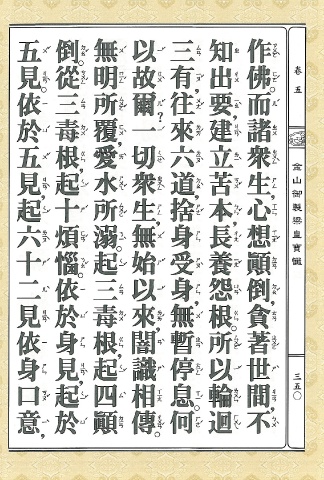 卷五
金山御製梁皇寶懺
三五〇
作佛。而諸衆生,心想顚倒,貪著世間,不
知出要,建立苦本,長養怨根。所以輪迴
三有,往來六道,捨身受身,無暫停息。何
以故爾?一切衆生,無始以來,闇識相傳。
無明所覆,愛水所溺。起三毒根,起四顚
倒。從三毒根,起十煩惱。依於身見,起於
五見。依於五見,起六十二見。依身口意,